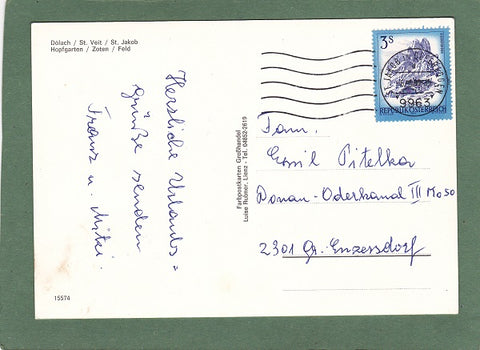 Dölach / St. Veit / St. Jakob
Hopfgarten / Zoten / Feld
Herzliche Urlaubs=
grüße senden
Franz u. Mitzi.
15574
Farbpostkarten Großhandel
Luise Rubner, Lienz - Tel. 04852-2619
3s
9963
REPUBLIK ÖSTERREICH
Fam.
Emil Pitelka
Donau-Oderkanal III M050
2301 Gr. Enzersdorf